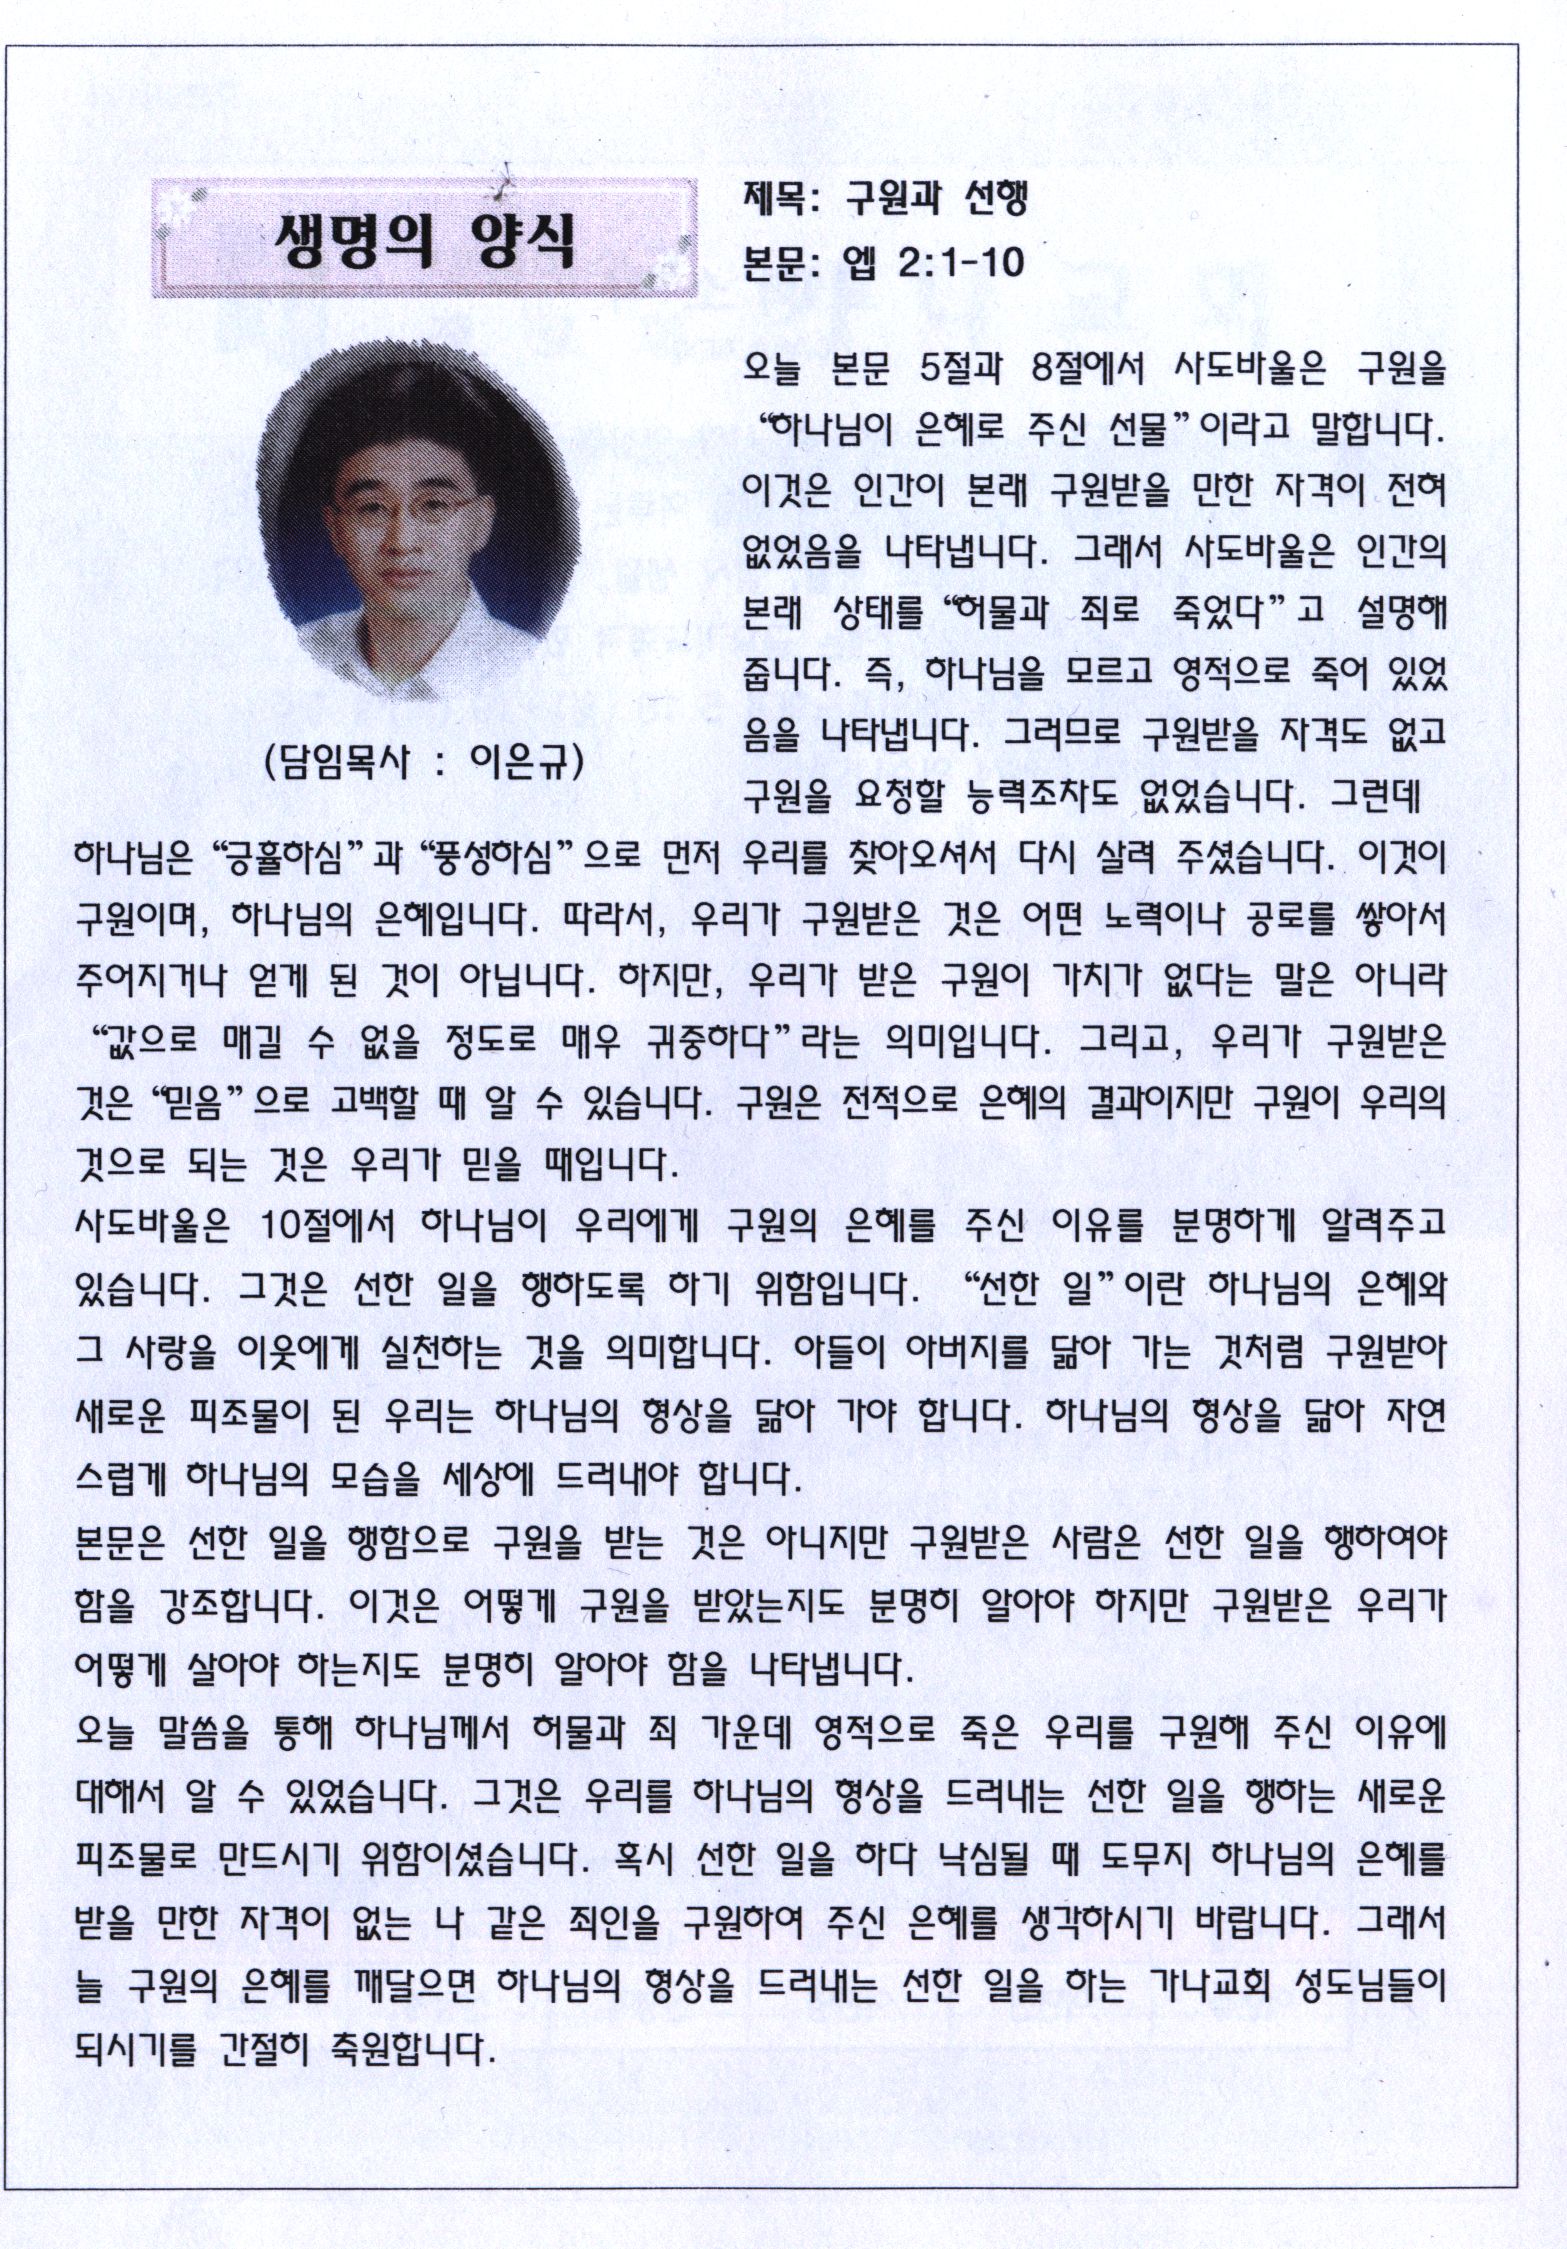 생명의 양식
제목: 구원과 선행
본문: 엡 2:1-10
(담임목사 : 이은규)
오늘 본문 5절과 8절에서 사도바울은 구원을
“하나님이 은혜로 주신 선물”이라고 말합니다.
이것은 인간이 본래 구원받을 만한 자격이 전혀
없었음을 나타냅니다. 그래서 사도바울은 인간의
본래 상태를 “허물과 죄로 죽었다”고 설명해
줍니다. 즉, 하나님을 모르고 영적으로 죽어 있었
음을 나타냅니다. 그러므로 구원받을 자격도 없고
구원을 요청할 능력조차도 없었습니다. 그런데
하나님은 “긍휼하심”과 “풍성하심”으로 먼저 우리를 찾아오셔서 다시 살려 주셨습니다. 이것이
구원이며, 하나님의 은혜입니다. 따라서, 우리가 구원받은 것은 어떤 노력이나 공로를 쌓아서
주어지거나 얻게 된 것이 아닙니다. 하지만, 우리가 받은 구원이 가치가 없다는 말은 아니라
“값으로 매길 수 없을 정도로 매우 귀중하다”라는 의미입니다. 그리고, 우리가 구원받은
것은 “믿음”으로 고백할 때 알 수 있습니다. 구원은 전적으로 은혜의 결과이지만 구원이 우리의
것으로 되는 것은 우리가 믿을 때입니다.
사도바울은 10절에서 하나님이 우리에게 구원의 은혜를 주신 이유를 분명하게 알려주고
있습니다. 그것은 선한 일을 행하도록 하기 위함입니다. “선한 일”이란 하나님의 은혜와
그 사랑을 이웃에게 실천하는 것을 의미합니다. 아들이 아버지를 닮아 가는 것처럼 구원받아
새로운 피조물이 된 우리는 하나님의 형상을 닮아 가야 합니다. 하나님의 형상을 닮아 자연
스럽게 하나님의 모습을 세상에 드러내야 합니다.
본문은 선한 일을 행함으로 구원을 받는 것은 아니지만 구원받은 사람은 선한 일을 행하여야
함을 강조합니다. 이것은 어떻게 구원을 받았는지도 분명히 알아야 하지만 구원받은 우리가
어떻게 살아야 하는지도 분명히 알아야 함을 나타냅니다.
오늘 말씀을 통해 하나님께서 허물과 죄 가운데 영적으로 죽은 우리를 구원해 주신 이유에
대해서 알 수 있었습니다. 그것은 우리를 하나님의 형상을 드러내는 선한 일을 행하는 새로운
피조물로 만드시기 위함이셨습니다. 혹시 선한 일을 하다 낙심될 때 도무지 하나님의 은혜를
받을 만한 자격이 없는 나 같은 죄인을 구원하여 주신 은혜를 생각하시기 바랍니다. 그래서
늘 구원의 은혜를 깨달으면 하나님의 형상을 드러내는 선한 일을 하는 가나교회 성도님들이
되시기를 간절히 축원합니다.